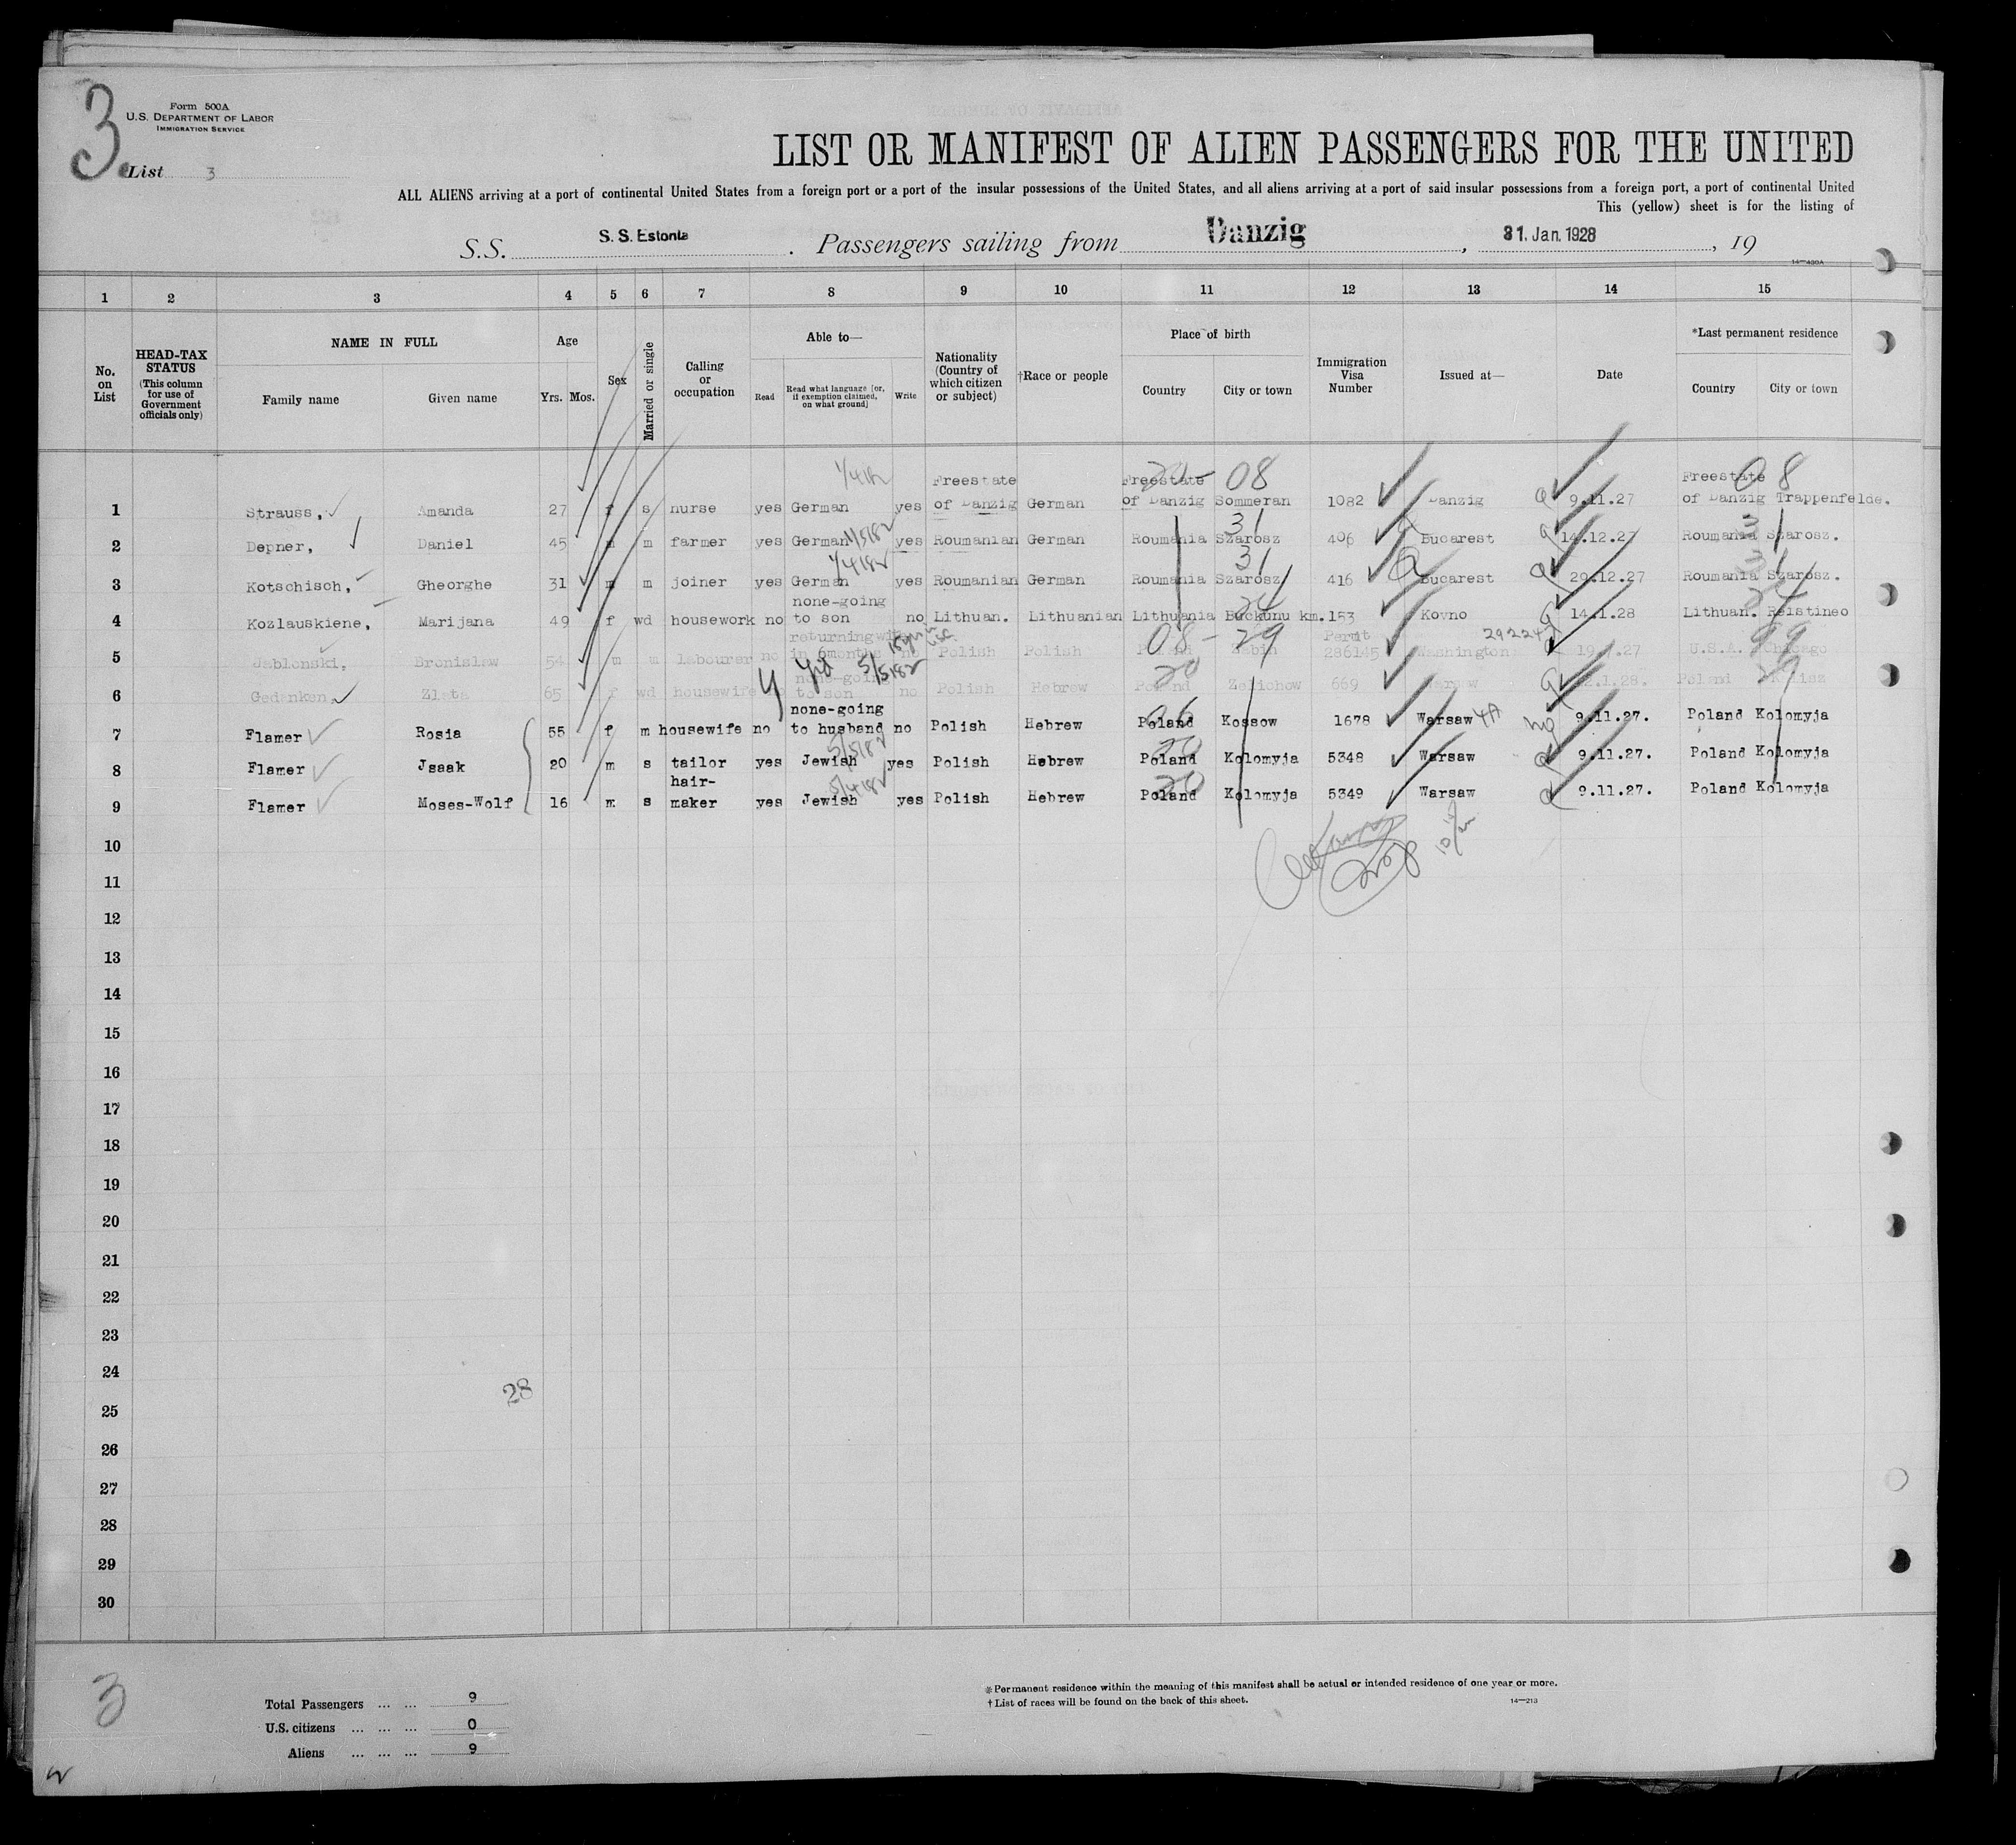 3
Form 500A
U.S. DEPARTMENT OF LABOR
IMMIGRATION SERVICE
List 3
LIST OR MANIFEST OF ALIEN PASSENGERS FOR THE UNITED
ALL ALIENS arriving at a port of continental United States from a foreign port or a port of the insular possessions of the United States, and all aliens arriving at a port of said insular possessions from a foreign port, a port of continental United
This (yellow) sheet is for the listing of
S.S. S. S. Estonia . Passengers sailing from Danzig , 31. Jan. 1928 , 19
14—430A
1 2 3 4 5 6 7 8 9 10 11 12 13 14 15
No. on List
HEAD-TAX STATUS (This column for use of Government officials only)
NAME IN FULL
Family name Given name
Age
Yrs. Mos.
Sex
Married or single
Calling or occupation
Able to—
Read Read what language [or, if exemption claimed, on what ground] Write
Nationality (Country of which citizen or subject)
†Race or people
Place of birth
Country City or town
Immigration Visa Number
Issued at—
Date
*Last permanent residence
Country City or town
Freestate Freestate 08 Freestate 08
1 Strauss, Amanda 27 f s nurse yes German yes of Danzig German of Danzig Sommeran 1082 Danzig 9.11.27 of Danzig Trappenfelde.
31 31
2 Depner, Daniel 45 m m farmer yes German yes Roumanian German Roumania Szarosz 406 Bucarest 14.12.27 Roumania Szarosz.
31 31
3 Kotschisch, Gheorghe 31 m m joiner yes German yes Roumanian German Roumania Szarosz 416 Bucarest 29.12.27 Roumania Szarosz.
none-going 24 24
4 Kozlauskiene, Marijana 49 f wd housework no to son no Lithuan. Lithuanian Lithuania Buckunu km. 153 Kovno 14.1.28 Lithuan. Reistineo
returning with 08 - 29 Permit 99
5 Jablonski, Bronislaw 54 m m labourer no in 6months no Polish Polish Poland Zabin 286145 Washington 27 U.S.A. Chicago
none-going 20
6 Gedanken Zlata 65 f wd housewife to son no Polish Hebrew Poland Zelichow 669 Warsaw .1.28. Poland
none-going
7 Flamer Rosia 55 f m housewife no to husband no Polish Hebrew Poland Kossow 1678 Warsaw 9.11.27. Poland Kolomyja
20
8 Flamer Jsaak 20 m s tailor yes Jewish yes Polish Hebrew Poland Kolomyja 5348 Warsaw 9.11.27. Poland Kolomyja
hair- 20
9 Flamer Moses-Wolf 16 m s maker yes Jewish yes Polish Hebrew Poland Kolomyja 5349 Warsaw 9.11.27. Poland Kolomyja
10
11
12
13
14
15
16
17
18
19
20
21
22
23
24
28
25
26
27
28
29
30
3
Total Passengers ... ... 9
U.S. citizens ... ... ... 0
Aliens ... ... ... 9
*Permanent residence within the meaning of this manifest shall be actual or intended residence of one year or more.
†List of races will be found on the back of this sheet.
14—213